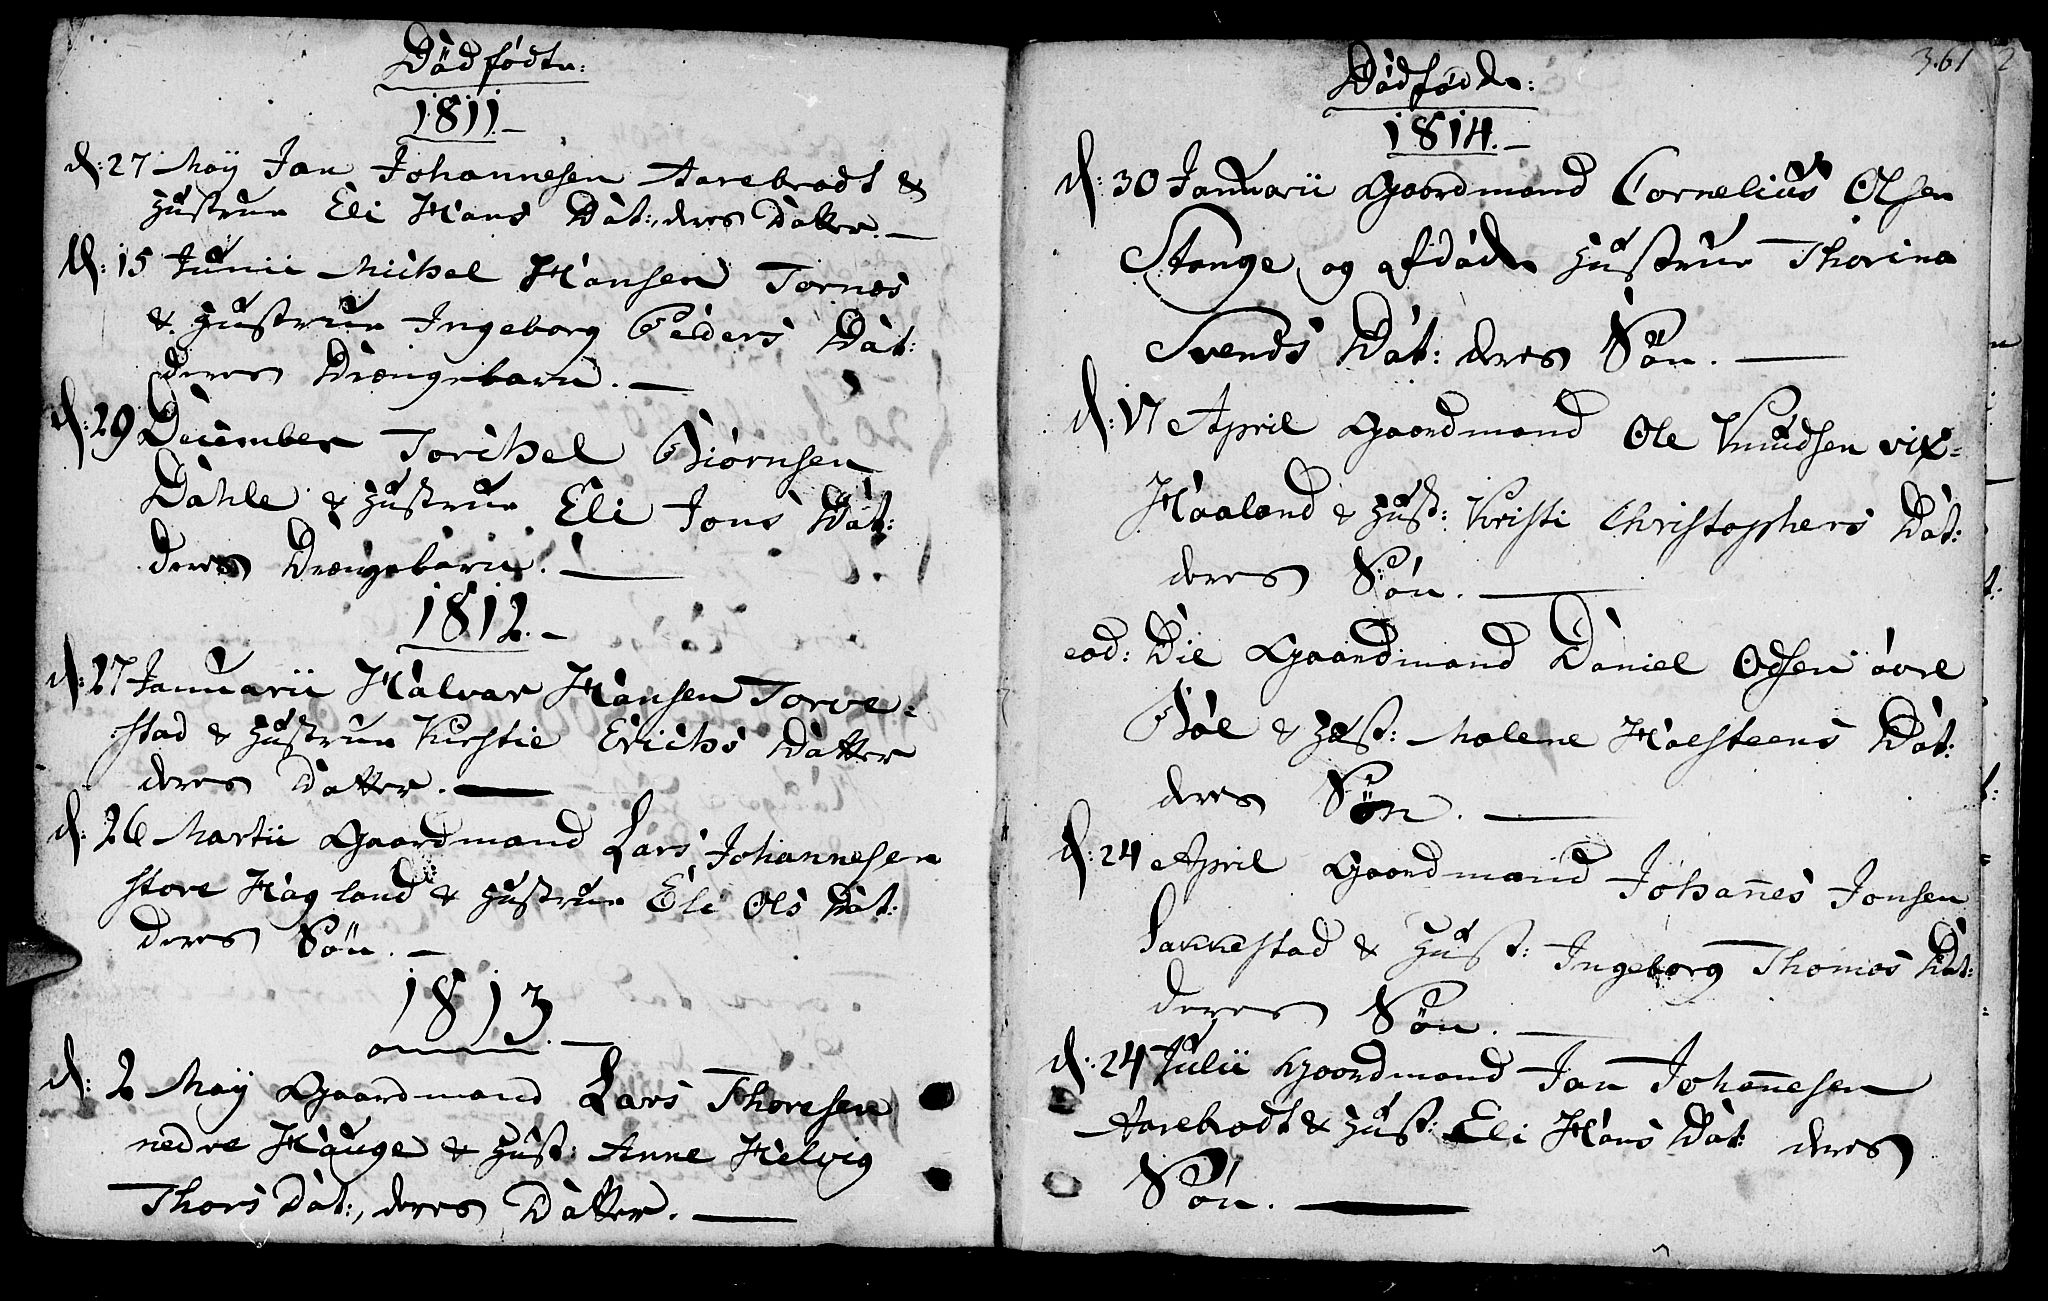 Dödfödte:
1811.
d: 27 Maÿ Jan Johannesen Aarebrodt &
Hustrue Eli Hans Dat:, deres Datter.
d: 15 Junii Michel Hansen Tornes
& Hustrue Ingeborg Peders Dat:
deres Drængebarn.
d: 29 December Torichel Biörnsen
Dahle & Hustrue Eli Jons Dat:
deres Drængebarn.
1812.
d: 27 Januarii Halvar Hansen Torve=
stad & Hustrue Kirstie Erichs Datter
deres Datter.
d: 26 Martii Gaardmand Lars Johannesen
store Hagland & Hustrue Eli Ols Dat:
deres Sön.
1813
d: 2 Maÿ Gaardmand Lars Thoresen
nedre Hauge & Hust: Anne Helvig
Thors Dat:, deres Datter.
361
Dödfödde:
1814.
d: 30 Januarii Gaardmand Cornelius Olsen
Stange og afdöde Hustrue Thorina
Svends Dat: deres Sön.
d: 17 April Gaardmand Ole Knudsen vix=
Haaland & Hust: Kristi Christophers Dat:
deres Sön.
eod: Die Gaardmand Daniel Odsen övre
Böe & Hust: Malene Holsteens Dat:
deres Sön.
d: 24 April Gaardmand Johan̄es Jonsen
Sakkestad & Hust: Ingeborg Thomas Dat:
deres Sön.
d: 24 Julii Gaardmand Jan Johan̄esen
Aarebrodt & Hust: Eli Hans Dat: deres
Sön.